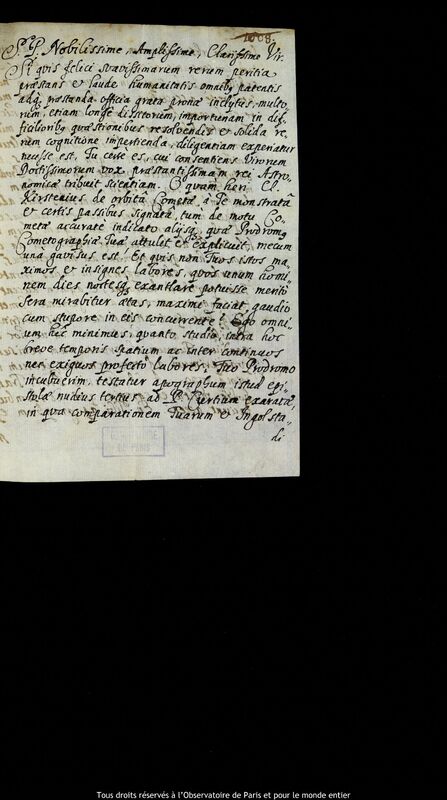 1608.
S. P. Nobilissime, Amplissime, Clarissime Vir.
Si quis felici suavissimarum rerum peritia
præstans et laude humanitatis omnibus patentis
adque præstanda officia grata pronæ inclytus, multo,,
rum, etiam longe dissitorum, importunam in dif,,
ficilioribus quæstionibus resolvendis et solida re,,
rum cognitione impertienda, diligentiam experiatur
necesse est, Tu certe es, cui consentiens Virorum
Doctissimorum vox præstantissimam rei Astro,,
nomicæ tribuit scientiam. O quam heri Cl.
Kirstenius de orbita Cometæ à Te monstrata
et certis passibus signata, tum de motu Co,,
metæ accurate indicato alijsque quæ Prodromus
Cometographiæ Tuæ attulit et explicuit, mecum
unà gavisus est. Et quis non Tuos istos ma,,
ximos et insignes labores, quos unum homi,,
nem dies noctesque exantlare potuisse meritò
sera mirabitur ætas, maximi faciat, gaudio
cum stupore in eis concurrente? Ego omni,,
um hic minimus, quanto studio, intra hoc
breve temporis spatium ac inter continuos
nec exiguos profecto labores, Tuo Prodromo
incubuerim, testatur apographum istud epi,,
stolæ nudius tertius ad P. exaratæ,
in qua comparationem Tuarum et Ingolsta,,
di
DE PARIS
Tous droits réservés à l'Observatoire de Paris et pour le monde entier